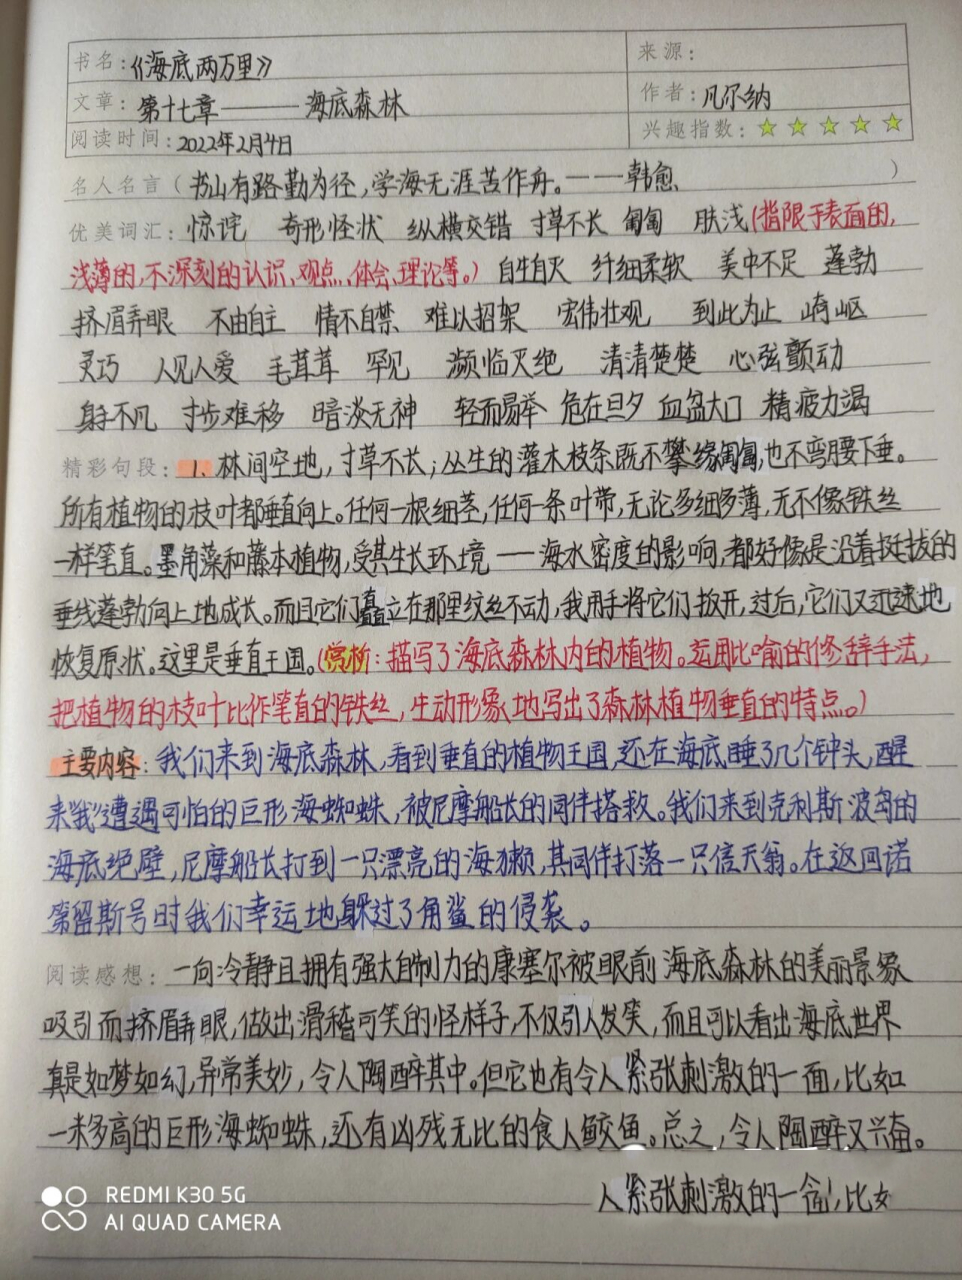 书名：《海底两万里》
来源：
文章：第十七章——海底森林
作者：凡尔纳
阅读时间：2022年2月4日
兴趣指数：☆☆☆☆☆
名人名言（书山有路勤为径，学海无涯苦作舟。——韩愈）
优美词汇：惊诧 奇形怪状 纵横交错 寸草不长 匍匐 肤浅（指限于表面的，
浅薄的，不深刻的认识、观点、体会、理论等。）自生自灭 纤细柔软 美中不足 蓬勃
挤眉弄眼 不由自主 情不自禁 难以招架 宏伟壮观 到此为止 崎岖
灵巧 人见人爱 毛茸茸 罕见 濒临灭绝 清清楚楚 心弦颤动
身手不凡 寸步难移 暗淡无神 轻而易举 危在旦夕 血盆大口 精疲力竭
精彩句段：1、林间空地，寸草不长；丛生的灌木枝条既不攀缘匍匐，也不弯腰下垂。
所有植物的枝叶都垂直向上。任何一根细茎，任何一条叶带，无论多细多薄，无不像铁丝
一样笔直。墨角藻和藤本植物，受其生长环境——海水密度的影响，都好像是沿着挺拔的
垂线蓬勃向上地成长。而且它们矗立在那里纹丝不动，我用手将它们扳开，过后，它们又迅速地
恢复原状。这里是垂直王国。（赏析：描写了海底森林内的植物。运用比喻的修辞手法，
把植物的枝叶比作笔直的铁丝，生动形象地写出了森林植物垂直的特点。）
主要内容：我们来到海底森林，看到垂直的植物王国，还在海底睡了几个钟头，醒
来“我”遭遇可怕的巨形海蜘蛛，被尼摩船长的同伴搭救。我们来到克利斯波岛的
海底绝壁，尼摩船长打到一只漂亮的海獭，其同伴打落一只信天翁。在返回诺
第留斯号时我们幸运地躲过了角鲨的侵袭。
阅读感想：一向冷静且拥有强大自制力的康塞尔被眼前海底森林的美丽景象
吸引而挤眉弄眼，做出滑稽可笑的怪样子，不仅引人发笑，而且可以看出海底世界
真是如梦如幻，异常美妙，令人陶醉其中。但它也有令人紧张刺激的一面，比如
一米多高的巨形海蜘蛛，还有凶残无比的食人鲛鱼。总之，令人陶醉又兴奋。
人紧张刺激的一面，比如
REDMI K30 5G
AI QUAD CAMERA